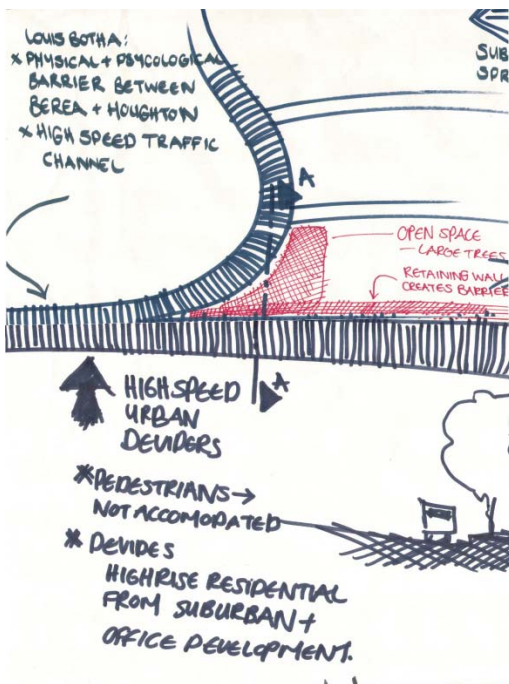 LOUIS BOTHA:
* PHYSICAL + PSYCOLOGICAL
BARRIER BETWEEN
BEREA + HOUGHTON
* HIGH SPEED TRAFFIC
CHANNEL
SUB
SPR
A
OPEN SPACE
— LARGE TREES
RETAINING WALL
CREATES BARRIER
A
HIGH SPEED
URBAN
DEVIDERS
* PEDESTRIANS →
NOT ACCOMODATED
* DEVIDES
HIGHRISE RESIDENTIAL
FROM SUBURBAN +
OFFICE DEVELOPMENT.